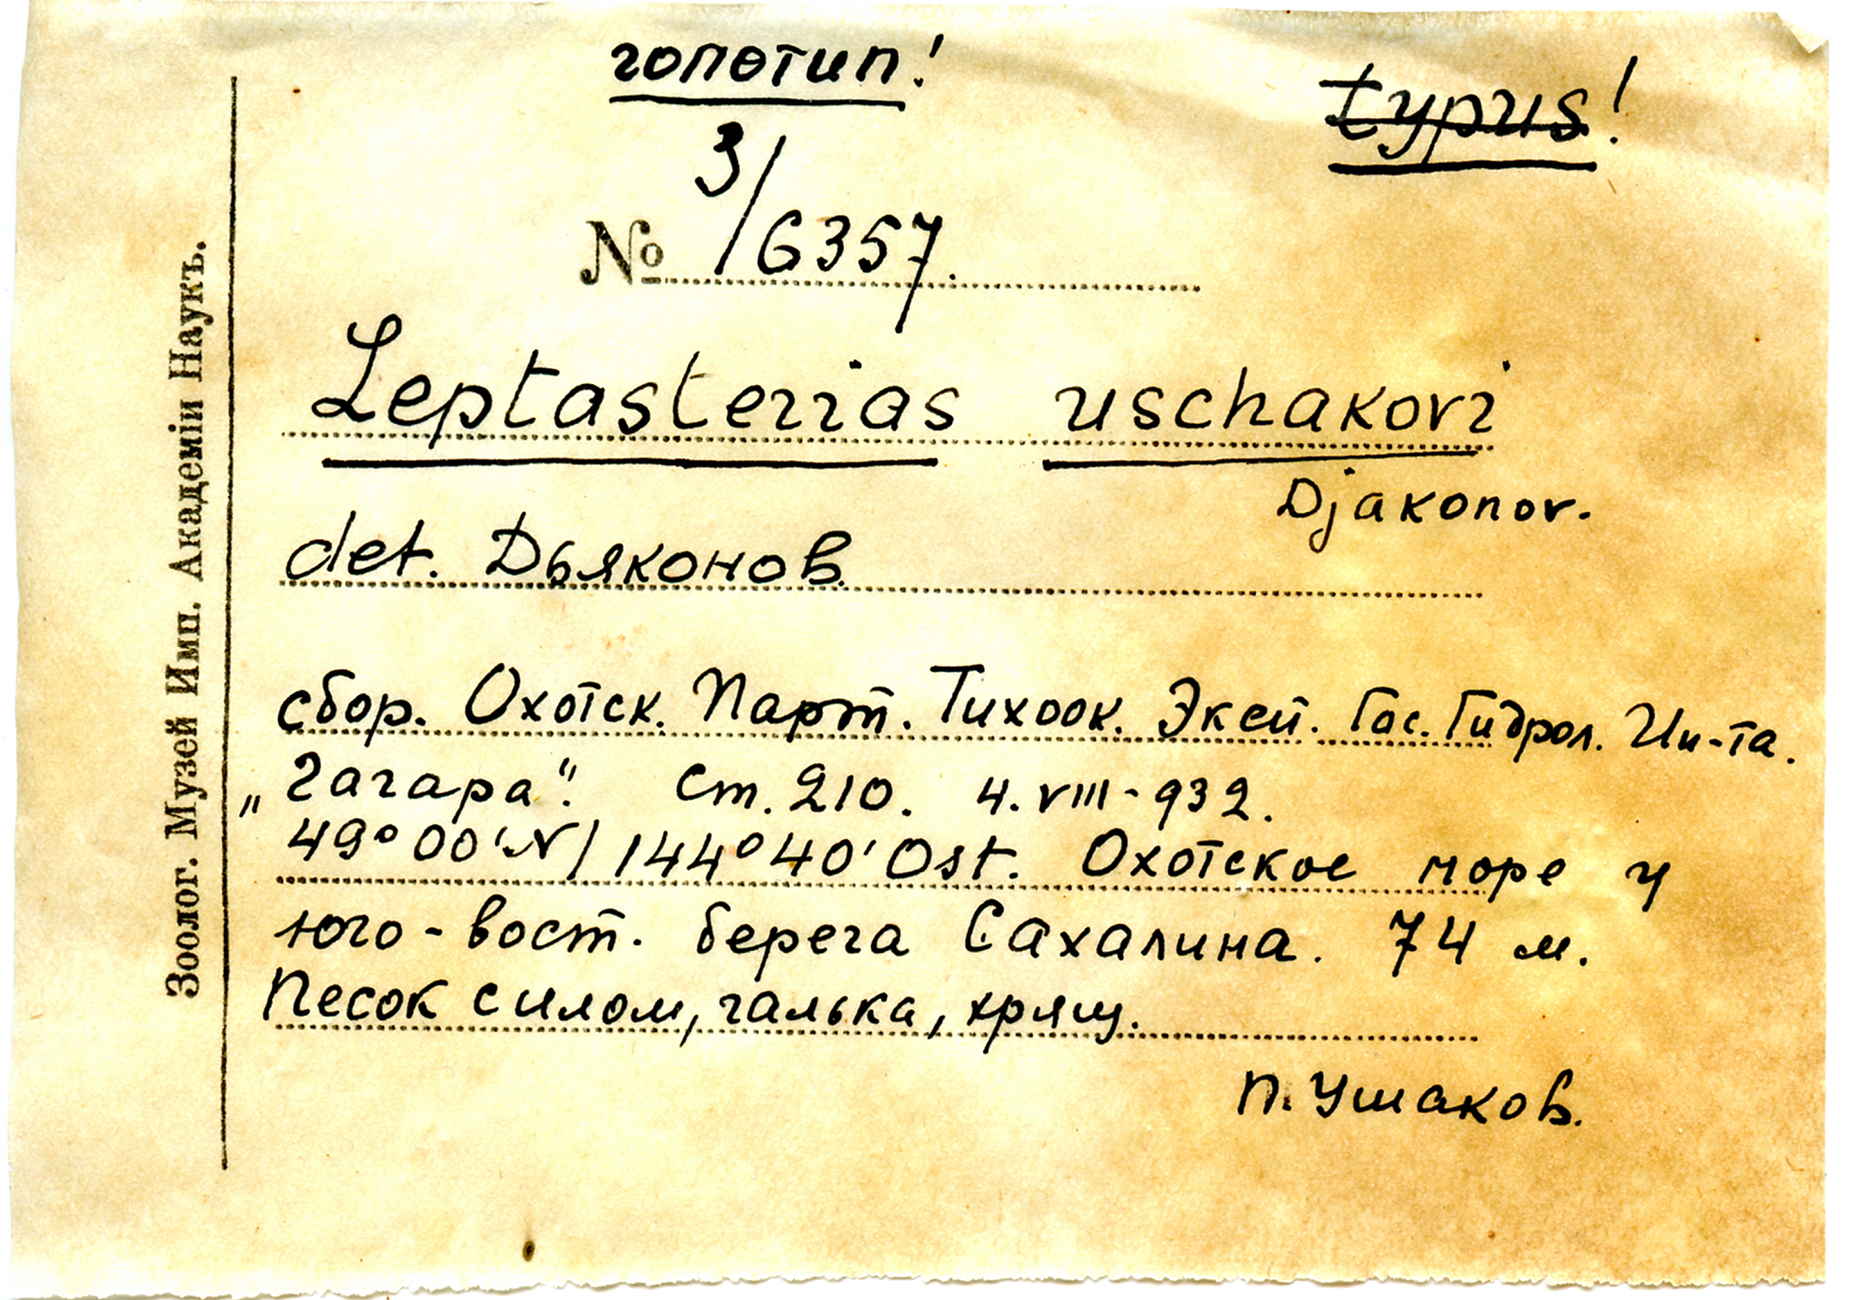 голотип!
typus!
3/6357.
№
Leptasterias uschakovi
Djakonov.
det. Дьяконов.
сбор. Охотск. Парт. Тихоок. Эксп. Гос. Гидрол. Ин-та.
„Гагара". Ст. 210. 4. VIII - 932.
49° 00' N / 144° 40' Ost. Охотское море у
юго-вост. берега Сахалина. 74 м.
Песок с илом, галька, хрящ.
П. Ушаков.
Зоолог. Музей Имп. Академіи Наукъ.